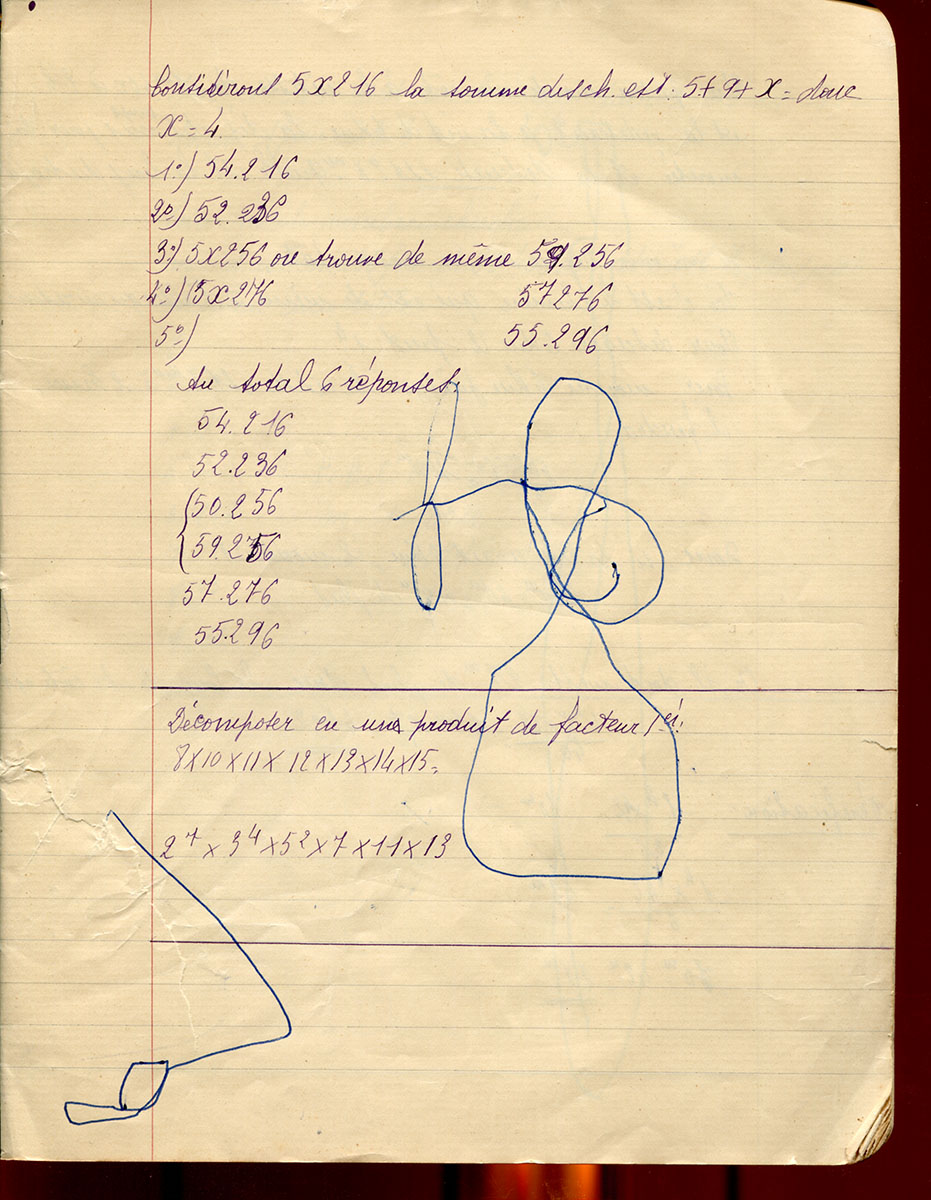 Considérons 5x216 la somme des ch. est : 5+9+x= donc
x=4.
1º) 54.216
2º) 52.236
3º) 5x256 on trouve de même 59.256
4º) 5x276 57276
5º) 55.296
Au total 6 réponses
54.216
52.236
50.256
59.256
57.276
55.296
Décomposer en une produit de facteur 1er:
8x10x11x12x13x14x15=
2⁷x3⁴x5²x7x11x13